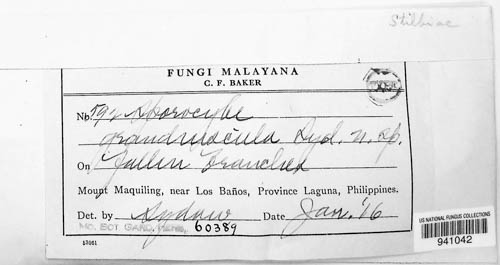 Stilbiac
FUNGI MALAYANA
C. F. BAKER
No. 592 Sporocybe
grandimacula Syd. n. sp.
On Fallen Branches
Mount Maquiling, near Los Baños, Province Laguna, Philippines.
Det. by Sydow Date Jan. '16
MO. BOT. GARD. HERB. 60389
13061
US NATIONAL FUNGUS COLLECTIONS
941042